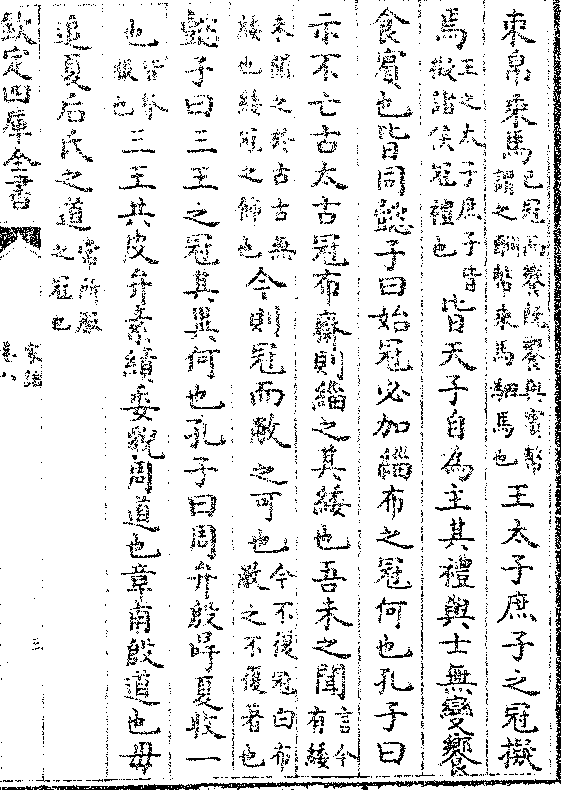 束帛乗馬已冠而饗既饗與賓幣謂之酬幣乗馬駟馬也王太子庶子之冠擬
焉王之太子庶子皆擬諸侯冠禮也皆天子自為主其禮與士無變饗
食賓也皆同懿子曰始冠必加緇布之冠何也孔子曰
示不亡古太古冠布齋則緇之其緌也吾未之聞言今有緌
未聞之於古古無緌也緌冠之飾也今則冠而敝之可也今不復冠白布敝之不復著也
懿子曰三王之冠其異何也孔子曰周弁殷哻夏收一
也皆祭服也三王共皮弁素績委貌周道也章甫殷道也毋
追夏后氏之道常所服之冠也
欽定四庫全書
家語
卷八
三